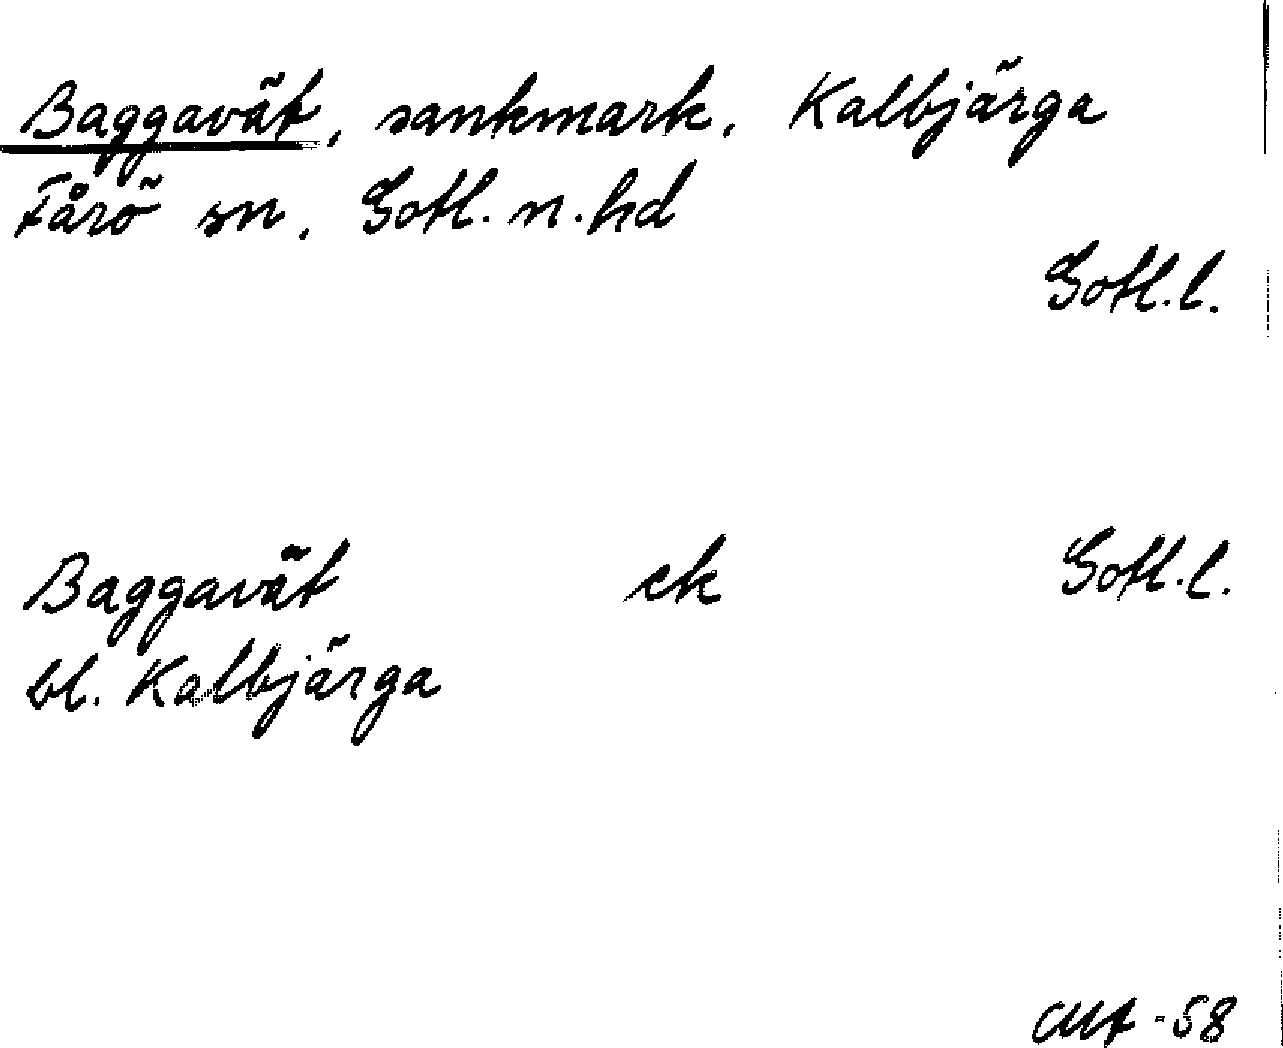 Baggavät, sankmark, Kalbjärga
Fårö sn, Gotl. n. hd
Gotl. l.
Baggavät ek Gotl. l.
bl. Kalbjärga
-58